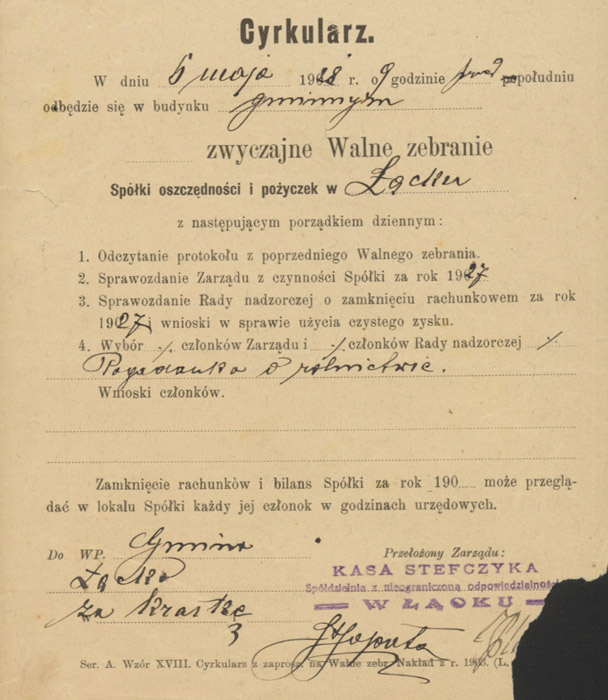 Cyrkularz.
W dniu 6 maja 1928 r. o 9 godzinie przed popołudniu
odbędzie się w budynku gminnym
zwyczajne Walne zebranie
Spółki oszczędności i pożyczek w Łącku
z następującym porządkiem dziennym:
1. Odczytanie protokołu z poprzedniego Walnego zebrania.
2. Sprawozdanie Zarządu z czynności Spółki za rok 1927
3. Sprawozdanie Rady nadzorczej o zamknięciu rachunkowem za rok
1927 i wnioski w sprawie użycia czystego zysku.
4. Wybór ./. członków Zarządu i ./. członków Rady nadzorczej ./.
Pogadanka o rolnictwie.
Wnioski członków.
Zamknięcie rachunków i bilans Spółki za rok 190 może przeglą-
dać w lokalu Spółki każdy jej członek w godzinach urzędowych.
Do WP. Gmina
Przełożony Zarządu:
Łącko
KASA STEFCZYKA
Spółdzielnia z nieograniczoną odpowiedzialności
W ŁĄCKU
za
3
Ser. A. Wzór XVIII. Cyrkularz z zaprosz. na Walne zebr. Nakład z r. 1908. (L.